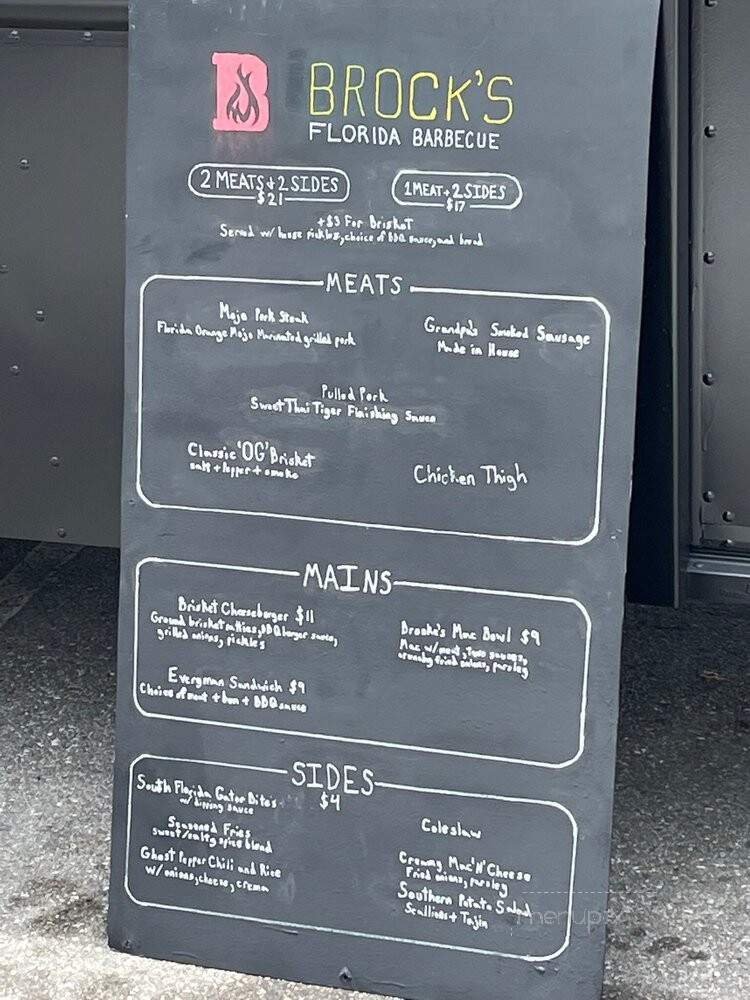 B BROCK'S
FLORIDA BARBECUE
2 MEATS + 2 SIDES
$21
1 MEAT + 2 SIDES
$17
+$3 For Brisket
Served w/ house pickles, choice of BBQ sauce, and bread
MEATS
Mojo Pork Steak
Florida Orange Mojo Marinated grilled pork
Grandpa's Smoked Sausage
Made in House
Pulled Pork
Sweet Thai Tiger Finishing Sauce
Classic 'OG' Brisket
salt + Pepper + smoke
Chicken Thigh
MAINS
Brisket Cheeseburger $11
Ground brisket patties, BBQ burger sauce,
grilled onions, pickles
Brooke's Mac Bowl $9
Mac w/ meat, two sauces,
crunchy fried onions, parsley
Everyman Sandwich $9
Choice of meat + bun + BBQ sauce
SIDES
$4
South Florida Gator Bites
w/ dipping sauce
Seasoned Fries
sweet/salty spice blend
Ghost Pepper Chili and Rice
w/ onions, cheese, crema
Coleslaw
Creamy Mac 'N' Cheese
Fried onions, parsley
Southern Potato Salad
Scallions + Tajin